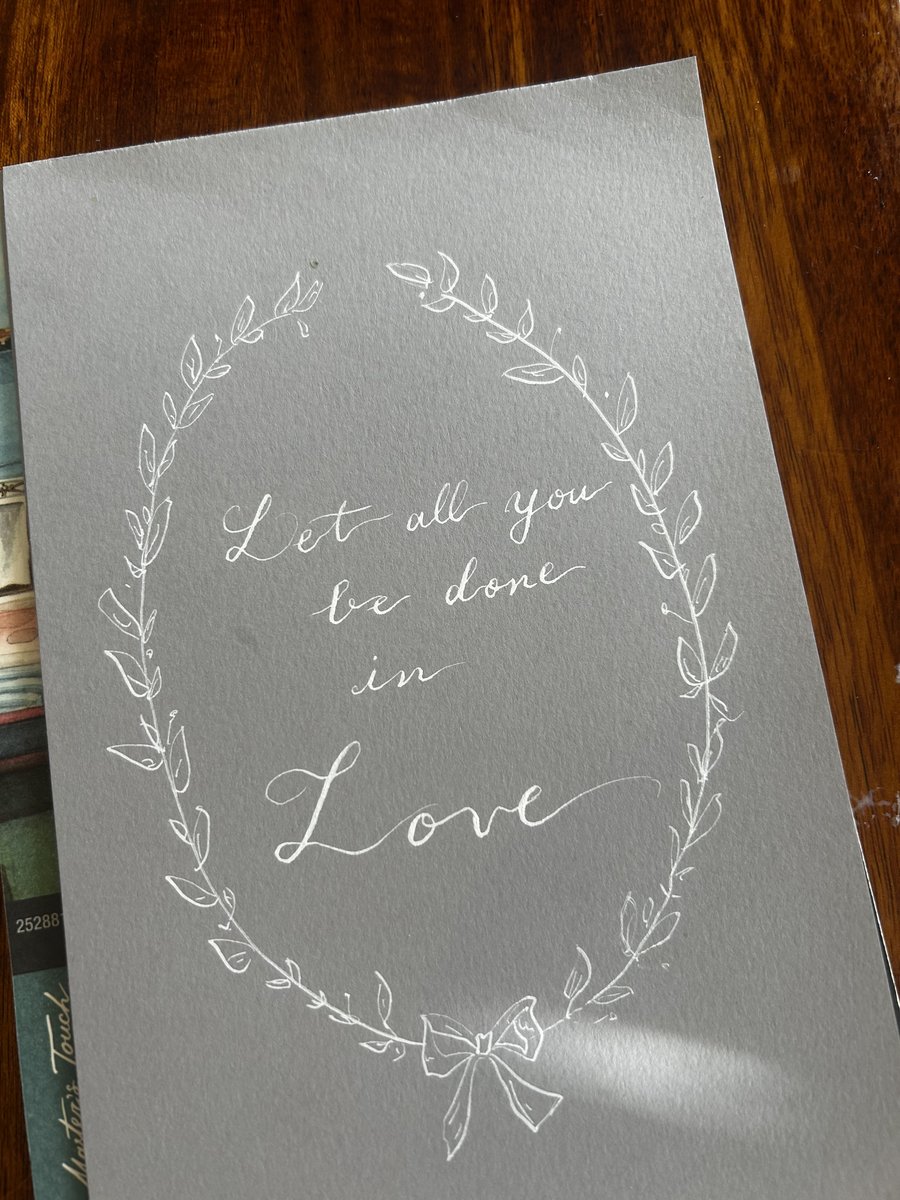 Let all you
be done
in
Love
252881
Master's Touch